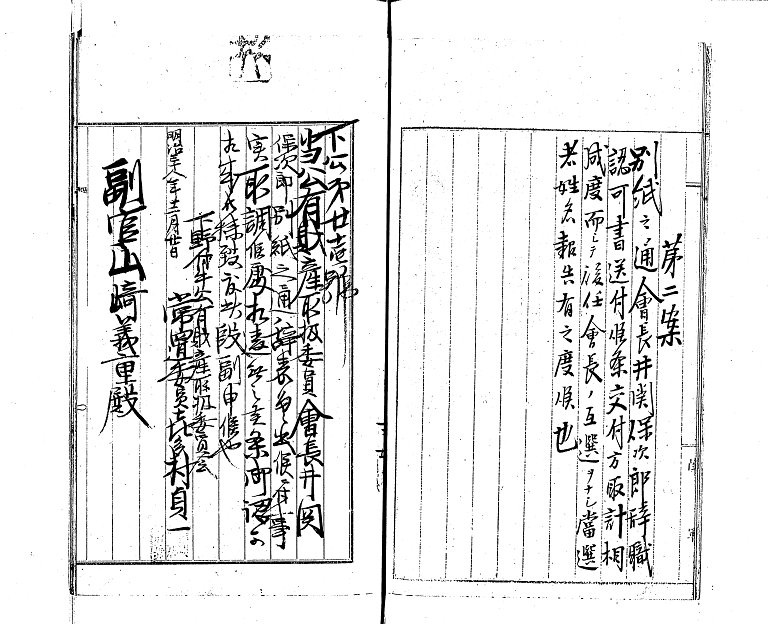 第二案
別紙之通會長井関保次郎辞職
認可書送付候条交付方取計相
成度而シテ後任會長ノ互選ヲナシ當選
者姓名報告有之度候也
下公第廿壱號
當公有財産取扱委員會長井関
保次郎別紙之通辞表差出候ニ付事
実取調候處相違無之条御認可
相成度
副申候也
下野
公有財産取扱委員会
明治
年十二月廿日
常置委員
村貞一
副官山崎義重殿